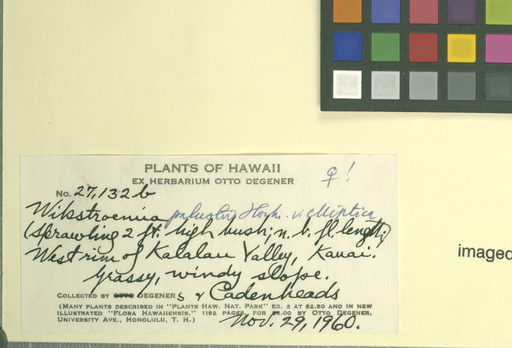 PLANTS OF HAWAII
EX HERBARIUM OTTO DEGENER
♀!
No. 27,132b
Wikstroemia palustris Hook. v. elliptica
(Sprawling 2 ft. high bush; n. b. fl. length)
West rim of Kalalau Valley, Kauai.
Grassy, windy slope.
COLLECTED BY OTTO DEGENERS & Cadenheads
(MANY PLANTS DESCRIBED IN "PLANTS HAW. NAT. PARK" ED. 2 AT $2.50 AND IN NEW
ILLUSTRATED "FLORA HAWAIIENSIS," 1192 PAGES, FOR $5.00 BY OTTO DEGENER,
UNIVERSITY AVE., HONOLULU, T. H.) Nov. 29, 1960.
imaged